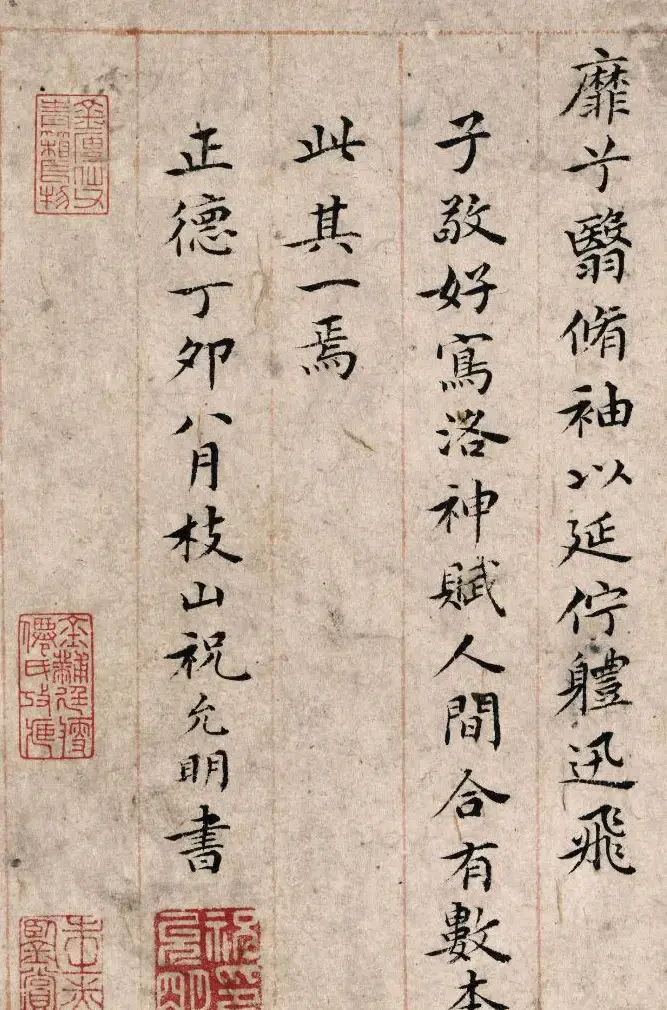 靡兮翳脩袖以延佇軆迅飛
子敬好寫洛神賦人間合有數本
此其一焉
正德丁夘八月枝山祝允明書